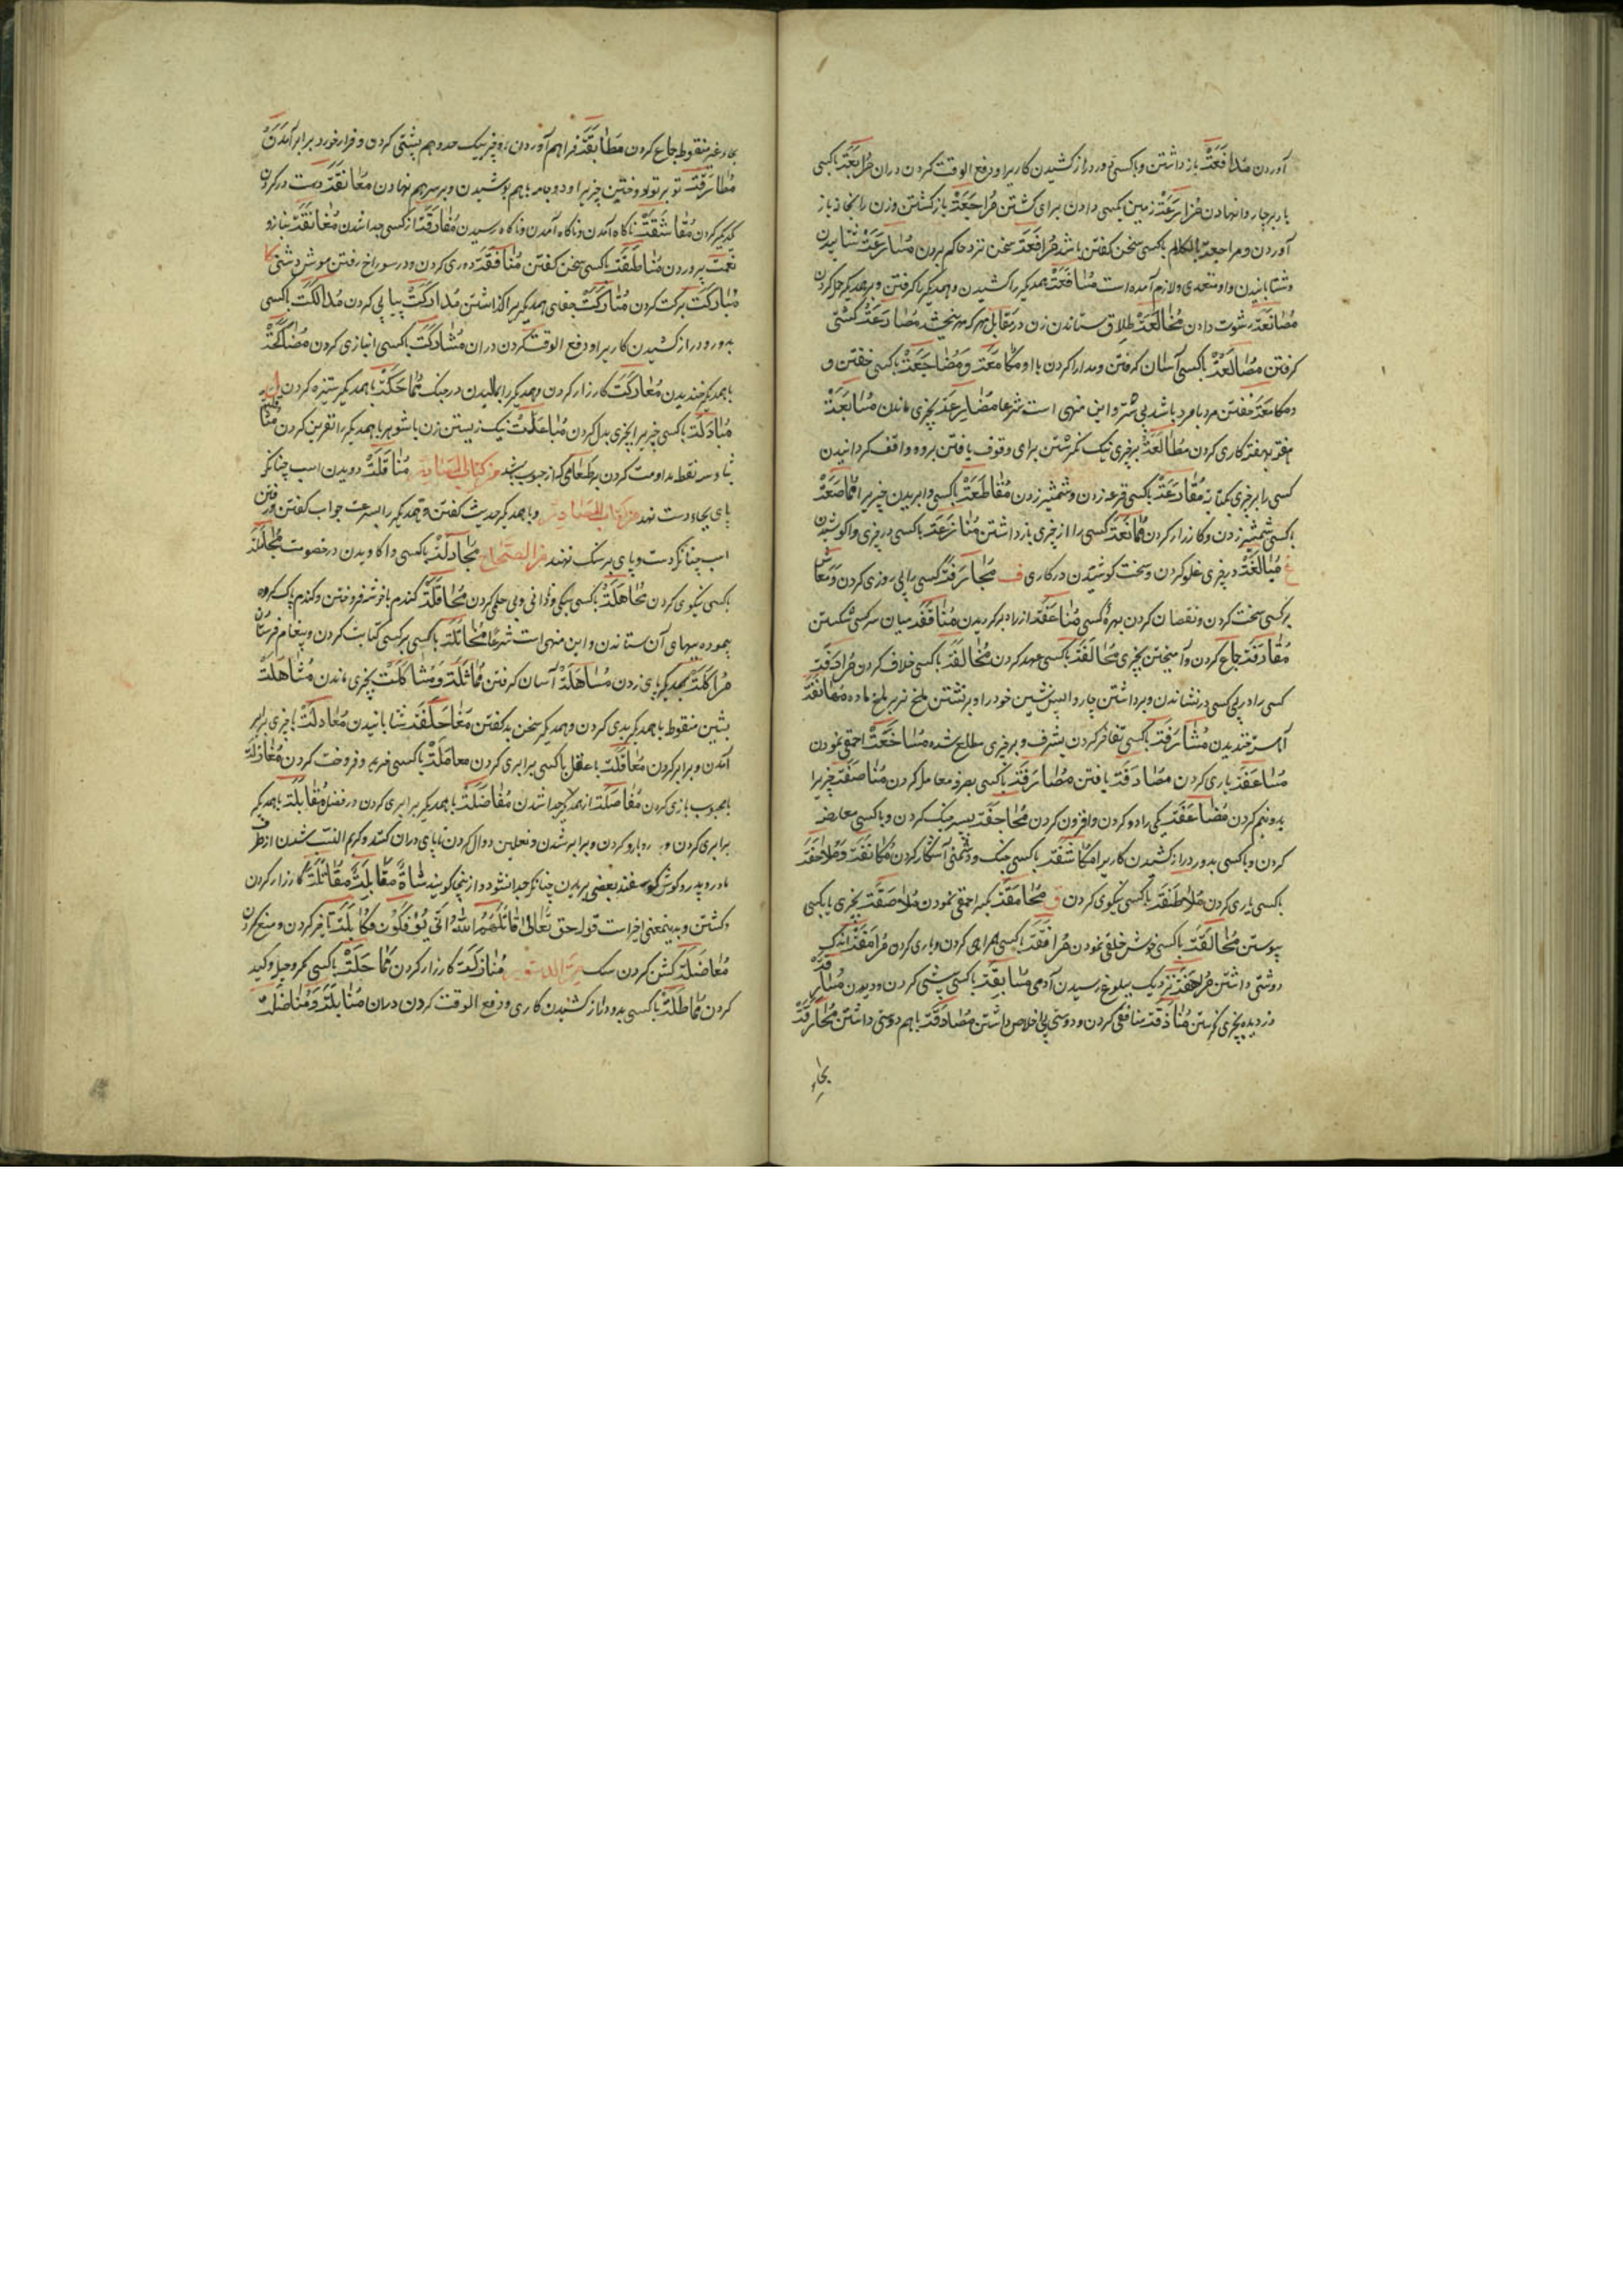 آوردن مُدافَعَتْ بازداشتن و با کسی دور دراز کشیدن کاریرا و دفع الوقت کردن دران مُرابَعَتْ با کسی
بازبر چاروا نهادن مُزارَعَتْ زمین بکسی دادن برای کشتن مُراجَعَتْ بازکشتن وزن را بنکاح باز
آوردن و مراجعت بالکلام با کسی سخن کفتن باشد مُرافَعَتْ سخن نزد حاکم بردن مُسارَعَتْ شتابیدن
و شتابانیدن و او متعدی و لازم آمده است همدیکر را کشیدن و همدیکر را کرفتن و بر همدیکر حمل کردن
مُصانَعَتْ رشوت دادن مُخالَعَتْ طلاق ستاندن زن در مقابل مهر که بخشد مُصارَعَتْ کشتی
کرفتن مُصالَعَتْ با کسی آسان کرفتن و مدارا کردن با او مُکامَعَتْ وَمُضاجَعَتْ با کسی خفتن و
و مکامعَتْ خفتن مرد با مرد باشد بی ستر و این منهی است شرعا مُضارَعَتْ بچیزی ماندن مُسابَعَتْ
هفته بهفته کاری کردن مُطالَعَتْ بر چیزی نیک نکرستن برای وقوف یافتن برو و واقف کردانیدن
کسی را بر چیزی بکتابه مُقارَعَتْ با کسی قرعه زدن و شمشیر زدن مُقاطَعَتْ با کسی وا بریدن چیزیرا مُماصَعَتْ
با کسی شمشیر زدن و کارزار کردن مُمانَعَتْ کسی را از چیزی بازداشتن مُنازَعَتْ با کسی در چیزی واکوشیدن
غ مُبالَغَتْ در چیزی غلو کردن و سخت کوشیدن در کاری ف مُجازَفَتْ کسی را بی روزی کردن
بر کسی سخت کردن و نقصان کردن بهره کسی از راه بر کردیدن مُناقَفَتْ میان سر کسی شکستن
مُقارَفَتْ جماع کردن و آمیختن بچیزی مُحالَفَتْ با کسی عهد کردن مُخالَفَتْ با کسی خلاف کردن مُرادَفَتْ
کسی را در پی کسی در نشاندن و برداشتن چاروا پس نشین خود را و بر نشستن ملخ نر بر ملخ ماده
آهسته خندیدن مُشارَفَتْ با کسی تفاخر کردن بشرف و بر چیزی مطلع شدن احمقی نمودن
مُساعَفَتْ یاری کردن مُصادَفَتْ یافتن مُصارَفَتْ با کسی بصرف معامله کردن مُناصَفَتْ چیزیرا
بدو نیم کردن مُضاعَفَتْ یکی را دو کردن و افزون کردن بسپر جنک کردن و با کسی معارضه
کردن و با کسی بدور دراز کشیدن کاریرا مُکاشَفَتْ با کسی جنک و دشمنی آشکار کردن مُکانَفَتْ وَمُلاحَفَتْ
با کسی یاری کردن مُلاطَفَتْ با کسی نیکوی کردن ق مُحامَقَتْ احمقی نمودن مُلاصَقَتْ بچیزی یا بکسی
پیوستن مُخالَقَتْ با کسی خوش خلقی نمودن مُرافَقَتْ با کسی همراهی کردن و یاری کردن مُرامَقَتْ اندک
دوستی داشتن مُراهَقَتْ نزدیک ببلوغ رسیدن آدمی مُسابَقَتْ با کسی پیشی کردن و دویدن مُسارَقَتْ
دزدیده بچیزی نکرستن مُماذَقَتْ منافقی کردن و دوستی بی اخلاص داشتن مُصادَقَتْ با هم دوستی داشتن مُحارَقَتْ
بحاء
بحاء غیر منقوط جماع کردن مُطابَقَتْ فراهم آوردن دو چیز بیک حد و هم پشتی کردن و فراخورد برابر آمدن
مُطارَقَتْ تو بر تو دوختن چیزیرا و دو جامه با هم پوشیدن و بر سر هم نهادن مُعانَقَتْ دست در کردن
یکدیکر کردن ناکاه آمدن و ناکاه رسیدن مُفارَقَتْ از کسی جدا شدن مُغانَقَتْ بناز و
نعمت پروردن مُناطَقَتْ با کسی سخن کفتن مُنافَقَتْ دوری کردن و در سوراخ رفتن موش دشتی ک
مُبارَکَتْ برکت کردن مُتارَکَتْ جفای همدیکر را کذاشتن مُدارَکَتْ پیاپی کردن مُدالَکَتْ با کسی
بدور و دراز کشیدن کاریرا و دفع الوقت کردن دران مُشارَکَتْ با کسی انبازی کردن مُضاحَکَتْ
با همدیکر خندیدن مُعارَکَتْ کارزار کردن و همدیکر را مالیدن در جنک مُماحَکَتْ با همدیکر ستیزه کردن ل
مُبادَلَتْ با کسی چیزیرا بچیزی بدل کردن مُباعَلَتْ نیک زیستن زن با شوهر با همدیکر را نفرین کردن
بثا و سه نقطه مداومت کردن بر طعامی که از حبوب باشد من کتاب المصادر مُناقَلَتْ دویدن اسب چنانکه
پای بجای دست نهد من کتاب المصادر و با همدیکر حدیث کفتن و همدیکر را بسرعت جواب کفتن و رفتن
اسب چنانکه دست و پای بر سنک ننهد من الصحاح مُجادَلَتْ با کسی واکاویدن در خصومت مُجامَلَتْ
با کسی نیکوی کردن مُجاهَلَتْ با کسی سبکی و نادانی و بی حلمی کردن مُحاقَلَتْ کندم با خوشه فروختن و کندم پاک کرده
پیموده ببهای آن ستاندن و این منهی است شرعا با کسی بر کسی کتابت کردن و پیغام فرستادن
مُراکَلَتْ همدیکر را پای زدن مُساهَلَتْ آسان کرفتن مُماثَلَتْ وَمُشاکَلَتْ بچیزی ماندن
بشین منقوط با همدیکر بدی کردن و همدیکر سخن بد کفتن شتابانیدن مُعادَلَتْ با چیزی برابر
آمدن و برابر کردن مُعاقَلَتْ با عقل با کسی برابری کردن معامَلَتْ با کسی خرید و فروخت کردن مُغازَلَتْ
با محبوب بازی کردن مُفاصَلَتْ از همدیکر جدا شدن مُفاضَلَتْ با همدیکر برابری کردن در فضل مُقابَلَتْ با همدیکر
برابری کردن و رو با رو کردن و برابر شدن و نعلین دوال کردن تا پای دران کنند و کریم النسب شدن از طرف
مادر و پدر و کوش کوسفند بعضی بریدن چنانکه جدا نشود و از ینجا کویند شاةٌ مقابلةٌ مُقاتَلَتْ کارزار کردن
و کشتن و بدینمعنی اخیر است قوله حق تعالی قاتَلَهُمُ اللهُ اَنّی یُؤفَکُونَ مُکابَلَتْ تاخیر کردن و منع کردن
مُعاضَلَتْ کشن کردن سک مُنازَلَتْ کارزار کردن مُماحَلَتْ با کسی مکر و حیل و کید
کردن مُماطَلَتْ با کسی بدور دراز کشیدن کاری و دفع الوقت کردن دران مُنابَلَتْ وَمُناضَلَتْ